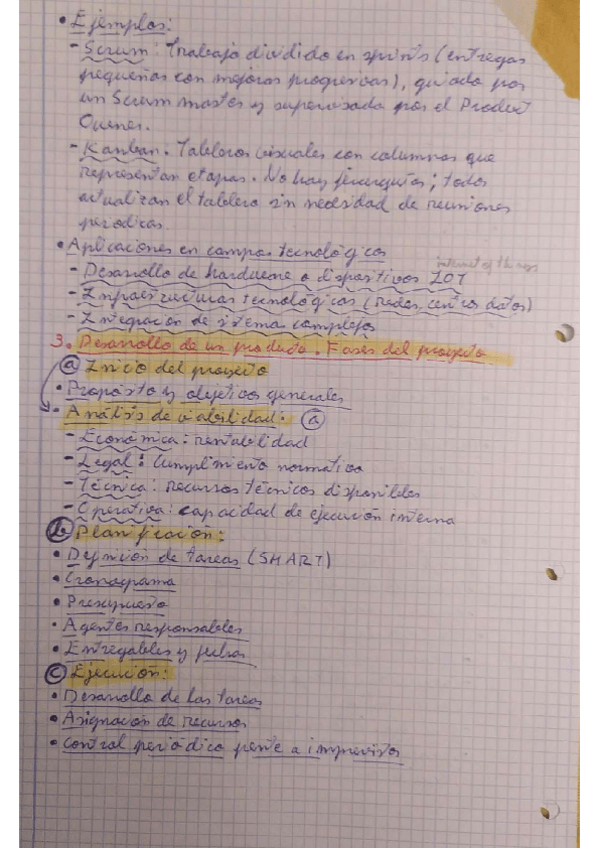 • Ejemplos:
- Scrum: Trabajo dividido en sprints (entregas
pequeñas con mejoras progresivas), guiado por
un Scrum master y supervisado por el Product
Owner.
- Kanban. Tableros visuales con columnas que
representan etapas. No hay jerarquías; todos
actualizan el tablero sin necesidad de reuniones
periódicas.
• Aplicaciones en campos tecnológicos
internet of things
- Desarrollo de hardware o dispositivos IOT
- Infraestructuras tecnológicas (redes, centros datos)
- Integración de sistema complejos
3. Desarrollo de un producto. Fases del proyecto
a Inicio del proyecto
• Propósito y objetivos generales
• Análisis de viabilidad: a
- Económica: rentabilidad
- Legal: Cumplimiento normativo
- Técnica: recursos técnicos disponibles
- Operativa: capacidad de ejecución interna
b Planificación:
• Definición de tareas (SMART)
• Cronograma
• Presupuesto
• Agentes responsables
• Entregables y fechas
c Ejecución:
• Desarrollo de las tareas
• Asignación de recursos
• Control periódico frente a imprevistos